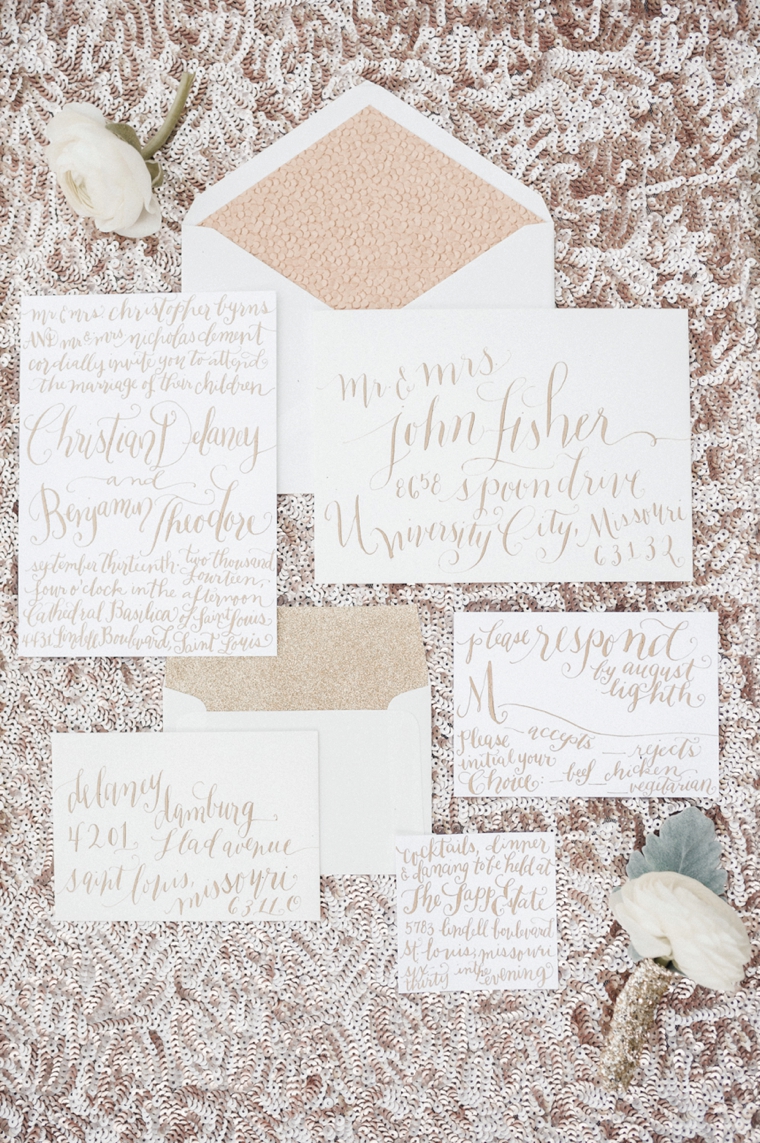 mr & mrs christopher byrns
AND mr & mrs nicholas clement
cordially invite you to attend
the marriage of their children
Christian Delaney
and
Benjamin Theodore
september thirteenth, two thousand
fourteen,
four o'clock in the afternoon
Cathedral Basilica of Saint Louis
4431 Lindell Boulevard, Saint Louis
mr & mrs
john fisher
8658 spoon drive
University City, Missouri
63132
please respond
by august
eighth
M
Please accepts rejects
initial your
Choice: beef chicken
vegetarian
delaney
4201
saint louis, missouri
cocktails, dinner
& dancing to be held at
The Japp Estate
5783 lindell boulevard
st. louis, missouri
six thirty in the evening